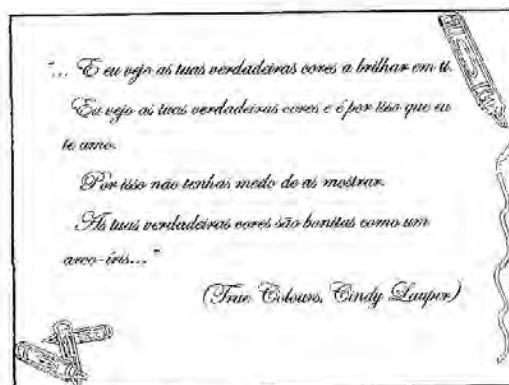 "... E eu vejo as tuas verdadeiras cores a brilhar em ti.
Eu vejo as tuas verdadeiras cores e é por isso que eu
te amo.
Por isso não tenhas medo de as mostrar.
As tuas verdadeiras cores são bonitas como um
arco-íris..."
(True Colours, Cindy Lauper)